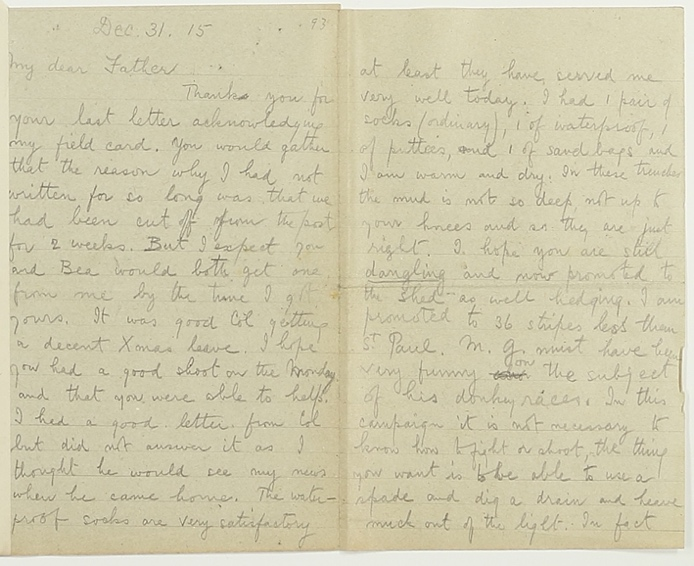 Dec. 31. 15
93
My dear Father
Thanks you for
your last letter acknowledging
my field card. You would gather
that the reason why I had not
written for so long was that we
had been cut off from the post
for 2 weeks. But I expect you
and Bea would both get one
from me by the time I got
yours. It was good Col getting
a decent Xmas leave. I hope
you had a good shoot on the Monday
and that you were able to help.
I had a good letter from Col
but did not answer it as I
thought he would see my news
when he came home. The water-
proof socks are very satisfactory
at least they have served me
very well today. I had 1 pair of
socks (ordinary), 1 of waterproof, 1
of putties, and 1 of sandbags and
I am warm and dry. In these trenches
the mud is not so deep, not up to
your knees and so they are just
right. I hope you are still
dangling and now promoted to
the shed as well hedging. I am
promoted to 36 stripes less than
St Paul. M. G. must have been
very funny on the subject
of his donkey races. In this
campaign it is not necessary to
know how to fight or shoot, the thing
you want is to be able to use a
spade and dig a drain and heave
muck out of the light. In fact